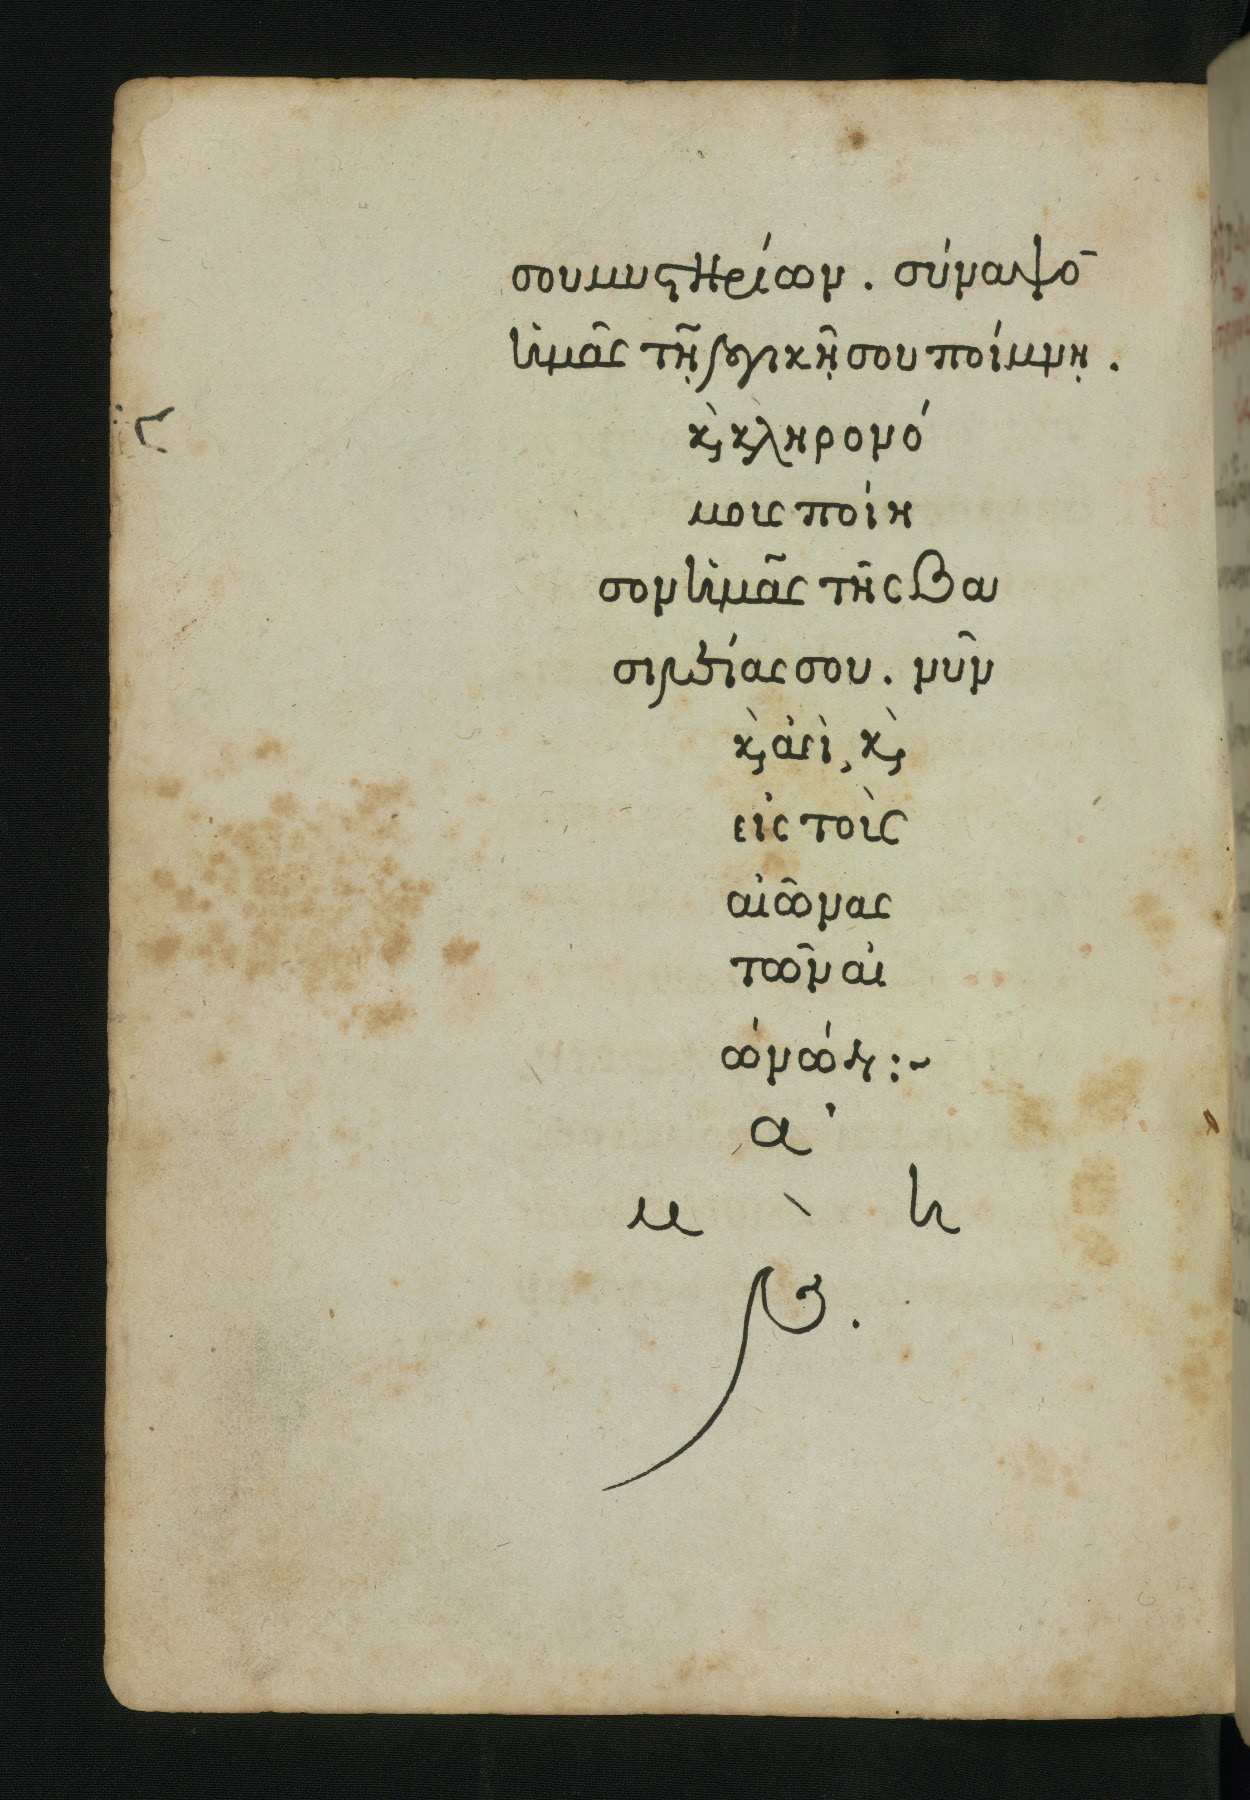 σου μυστηρίων. σύναψο̄
ἡμᾶς τῇ λογικῇ σου ποίμνῃ.
κ̀ κληρονό
μους ποίη
σον ἡμᾶς τῆς βα
σιλείας σου. νῦν
κ̀ ἀεὶ, κ̀
εἰς τοὺς
αἰῶνας
τῶν αἰ
ώνων :~
α᾿
μ ὴ
ν.